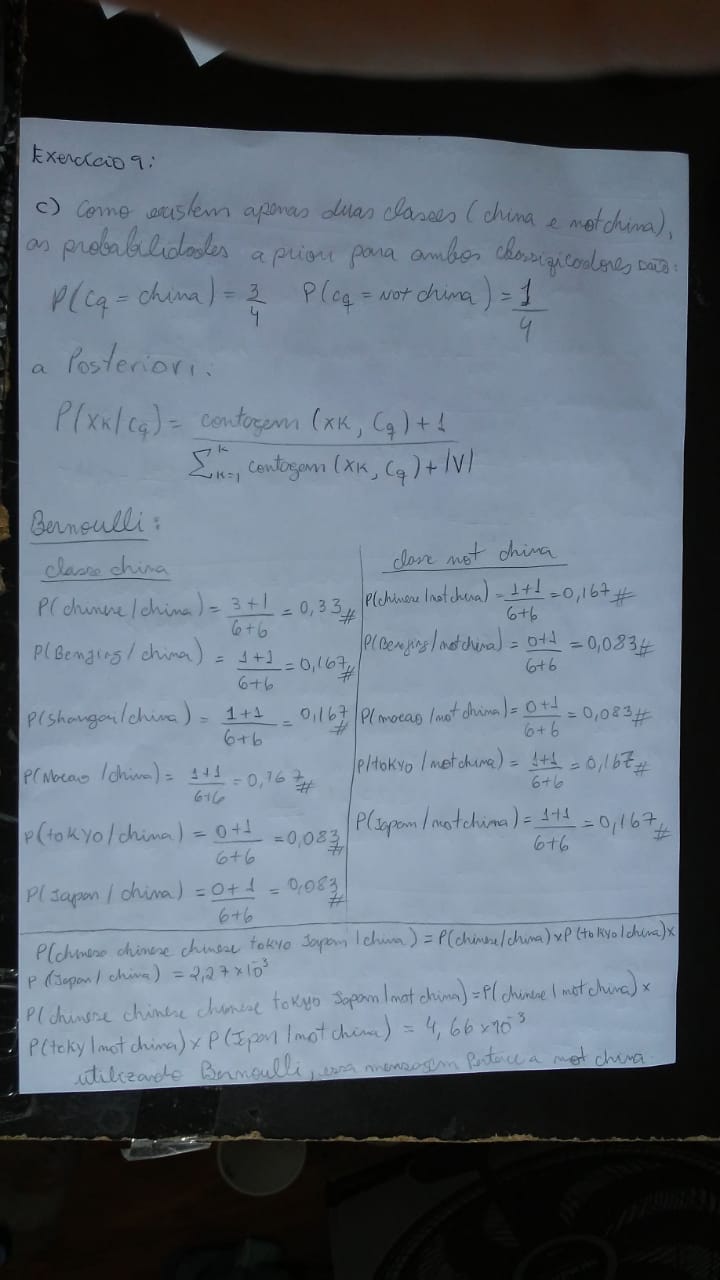 Exercício 9:
c) Como existem apenas duas classes (china e not china),
as probabilidades a priori para ambos classificadores são:
P(Cq = china) = 3/4 P(cq = Not china) = 1/4
a Posteriori:
P(XK/Cq) = contagem (XK, Cq) + 1 / Σ^K_{K=1} contagem (XK, Cq) + |V|
Bernoulli:
classe china
P(chinese/china) = 3+1/6+6 = 0,33#
P(Benjing/china) = 1+1/6+6 = 0,167#
P(Shangai/china) = 1+1/6+6 = 0,167#
P(Macao/china) = 1+1/6+6 = 0,167#
P(tokyo/china) = 0+1/6+6 = 0,083#
P(Japan/china) = 0+1/6+6 = 0,083#
classe not china
P(chinese/not china) = 1+1/6+6 = 0,167#
P(Benjing/not china) = 0+1/6+6 = 0,083#
P(macao/not china) = 0+1/6+6 = 0,083#
P(tokyo/not china) = 1+1/6+6 = 0,167#
P(Japan/not china) = 1+1/6+6 = 0,167#
P(chinese chinese chinese tokyo Japan/china) = P(chinese/china)xP(tokyo/china)x
P(Japan/china) = 2,27x10^-3
P(chinese chinese chinese tokyo Japan/not china) = P(chinese/not china)x
P(toky/not china)xP(Jpan/not china) = 4,66x10^-3
utilizando Bernoulli, essa mensagem Pertence a not china